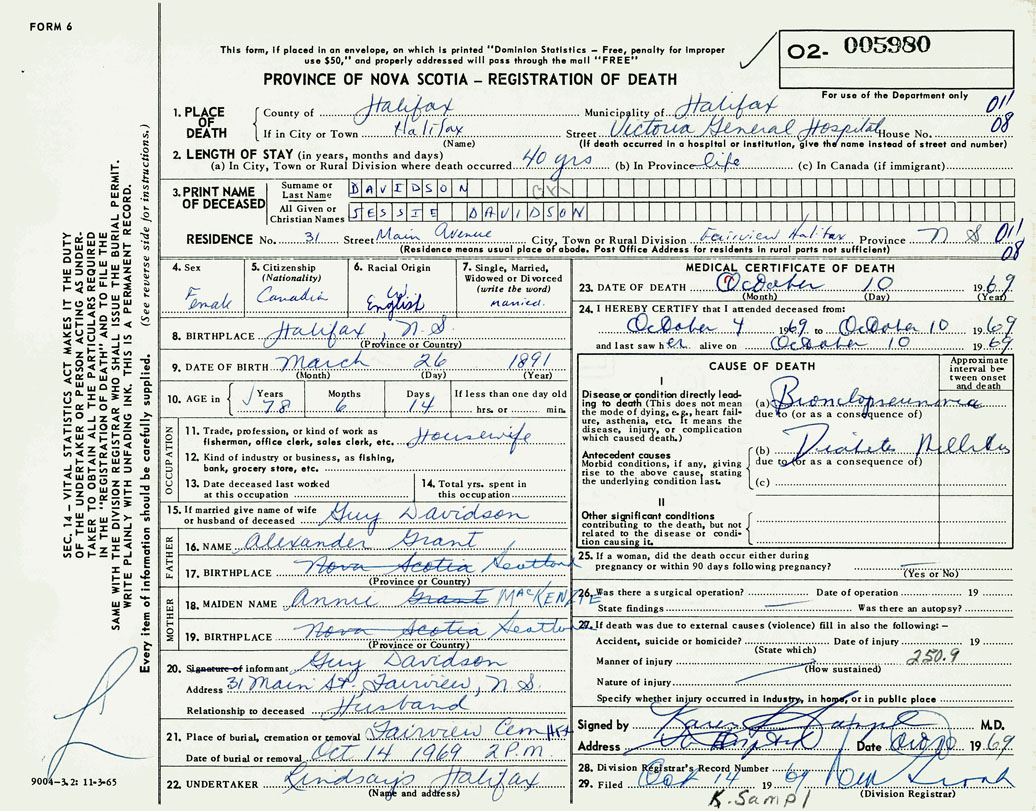 FORM 6
This form, if placed in an envelope, on which is printed "Dominion Statistics – Free, penalty for improper
use $50," and properly addressed will pass through the mail "FREE"
PROVINCE OF NOVA SCOTIA – REGISTRATION OF DEATH
02- 005980
For use of the Department only
1. PLACE OF DEATH
County of Halifax Municipality of Halifax 011
If in City or Town Halifax Street Victoria General Hospital House No. 08
(Name) (If death occurred in a hospital or institution, give the name instead of street and number)
2. LENGTH OF STAY (in years, months and days)
(a) In City, Town or Rural Division where death occurred 40 yrs (b) In Province life (c) In Canada (if immigrant)
3. PRINT NAME OF DECEASED
Surname or Last Name DAVIDSON
All Given or Christian Names JESSIE DAVIDSON
RESIDENCE No. 31 Street Main Avenue City, Town or Rural Division Fairview Halifax Province N S 011
(Residence means usual place of abode. Post Office Address for residents in rural parts not sufficient) 08
4. Sex Female
5. Citizenship (Nationality) Canadian
6. Racial Origin English
7. Single, Married, Widowed or Divorced (write the word) married.
8. BIRTHPLACE Halifax, N.S.
(Province or Country)
9. DATE OF BIRTH March 26 1891
(Month) (Day) (Year)
10. AGE in Years 78 Months 6 Days 14 If less than one day old hrs. or min.
OCCUPATION
11. Trade, profession, or kind of work as fisherman, office clerk, sales clerk, etc. Housewife
12. Kind of industry or business, as fishing, bank, grocery store, etc.
13. Date deceased last worked at this occupation
14. Total yrs. spent in this occupation
15. If married give name of wife or husband of deceased Guy Davidson
FATHER
16. NAME Alexander Grant
17. BIRTHPLACE Nova Scotia Scotland
(Province or Country)
MOTHER
18. MAIDEN NAME Annie Grant MACKENZIE
19. BIRTHPLACE Nova Scotia Scotland
(Province or Country)
20. Signature of informant Guy Davidson
Address 31 Main St. Fairview, N S.
Relationship to deceased Husband
21. Place of burial, cremation or removal Fairview Cem HFX
Date of burial or removal Oct 14 1969 2 P.M
22. UNDERTAKER Lindsay's Halifax
(Name and address)
MEDICAL CERTIFICATE OF DEATH
23. DATE OF DEATH October 10 1969
(Month) (Day) (Year)
24. I HEREBY CERTIFY that I attended deceased from:
October 4 1969 to October 10 1969
and last saw her alive on October 10 1969
CAUSE OF DEATH
Approximate interval between onset and death
I
Disease or condition directly leading to death (This does not mean the mode of dying, e.g., heart failure, asthenia, etc. It means the disease, injury, or complication which caused death.)
(a) Bronchopneumonia
due to (or as a consequence of)
Antecedent causes
Morbid conditions, if any, giving rise to the above cause, stating the underlying condition last.
(b) Diabetes Mellitus
due to (or as a consequence of)
(c)
II
Other significant conditions
contributing to the death, but not related to the disease or condition causing it.
25. If a woman, did the death occur either during
pregnancy or within 90 days following pregnancy?
(Yes or No)
26. Was there a surgical operation? Date of operation 19
State findings Was there an autopsy?
27. If death was due to external causes (violence) fill in also the following:–
Accident, suicide or homicide? Date of injury 19
(State which)
Manner of injury 250.9
(How sustained)
Nature of injury
Specify whether injury occurred in industry, in home, or in public place
Signed by Karen M.D.
Address Date Oct 10 1969
28. Division Registrar's Record Number
29. Filed Oct 14 1969
(Division Registrar)
K. Sampl
SEC. 14 – VITAL STATISTICS ACT MAKES IT THE DUTY
OF THE UNDERTAKER OR PERSON ACTING AS UNDER-
TAKER TO OBTAIN ALL THE PARTICULARS REQUIRED
IN THE "REGISTRATION OF DEATH" AND TO FILE THE
SAME WITH THE DIVISION REGISTRAR WHO SHALL ISSUE THE BURIAL PERMIT.
WRITE PLAINLY WITH UNFADING INK. THIS IS A PERMANENT RECORD.
Every item of information should be carefully supplied. (See reverse side for instructions.)
9004-3.2: 11-3-65